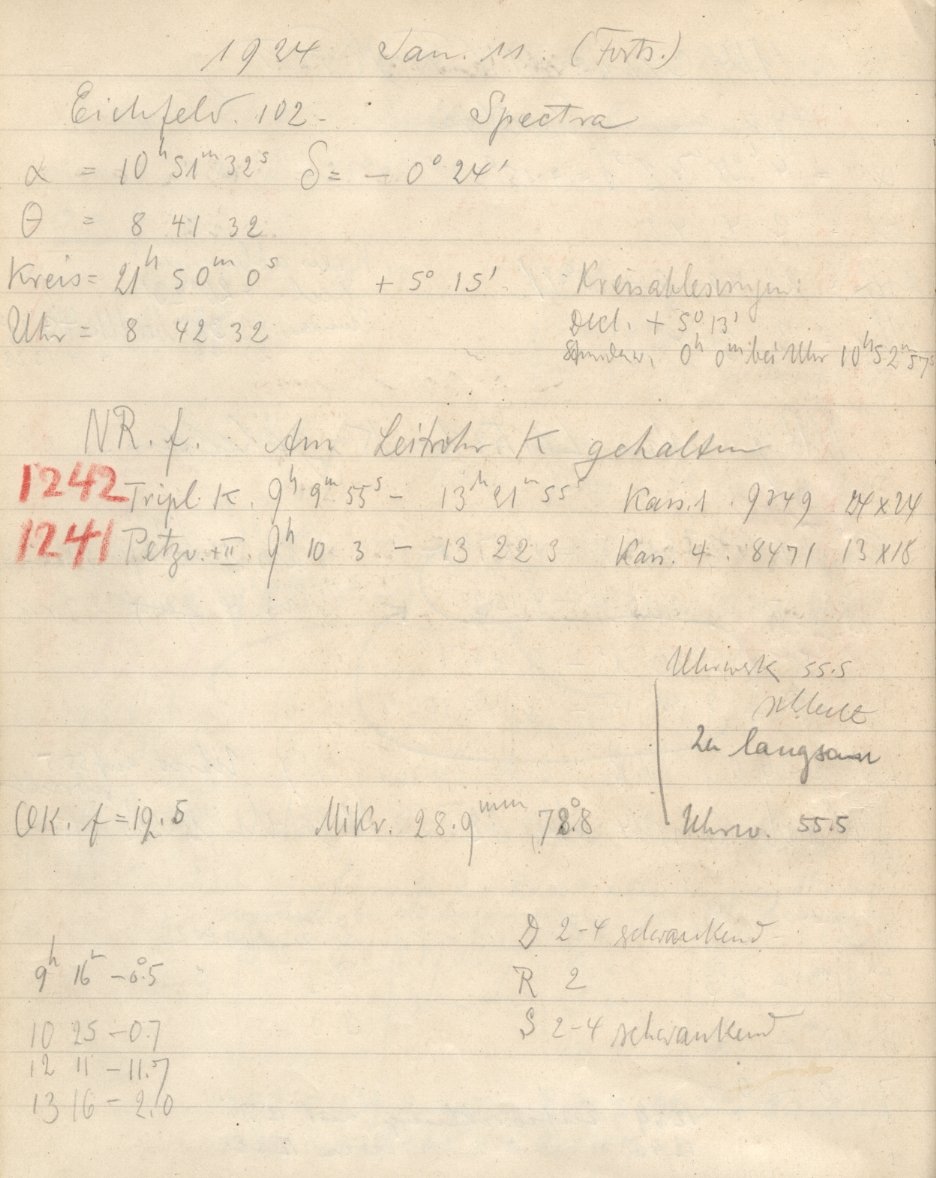 1924 Jan. 11. (Forts.)
Eichfeld. 102. Spectra
α = 10h 51m 32s δ = - 0° 24'
θ = 8 41 32
Kreis = 21h 50m 0s + 5° 15' Kreisablesungen:
Uhr = 8 42 32 Decl. + 5° 13'
Stundenw. 0h 0m bei Uhr 10h 52m 57s
NR. f. Am Leitrohr K gehalten
1242 Tripl. K. 9h 9m 55s - 13h 21m 55s Kass. 1. 9249 24 x 24
1241 Petzv. + II. 9h 10 3 - 13 22 3 Kass. 4. 8471 13 x 18
Uhrwerk 55.5
zu langsam
OK. f = 19.5 Mikr. 28.9mm 78.8 Uhrw. 55.5
D 2-4 schwankend
9h 16m -0.5
R 2
10 25 -0.7 S 2-4 schwankend
12 11 -11.7
13 16 - 2.0